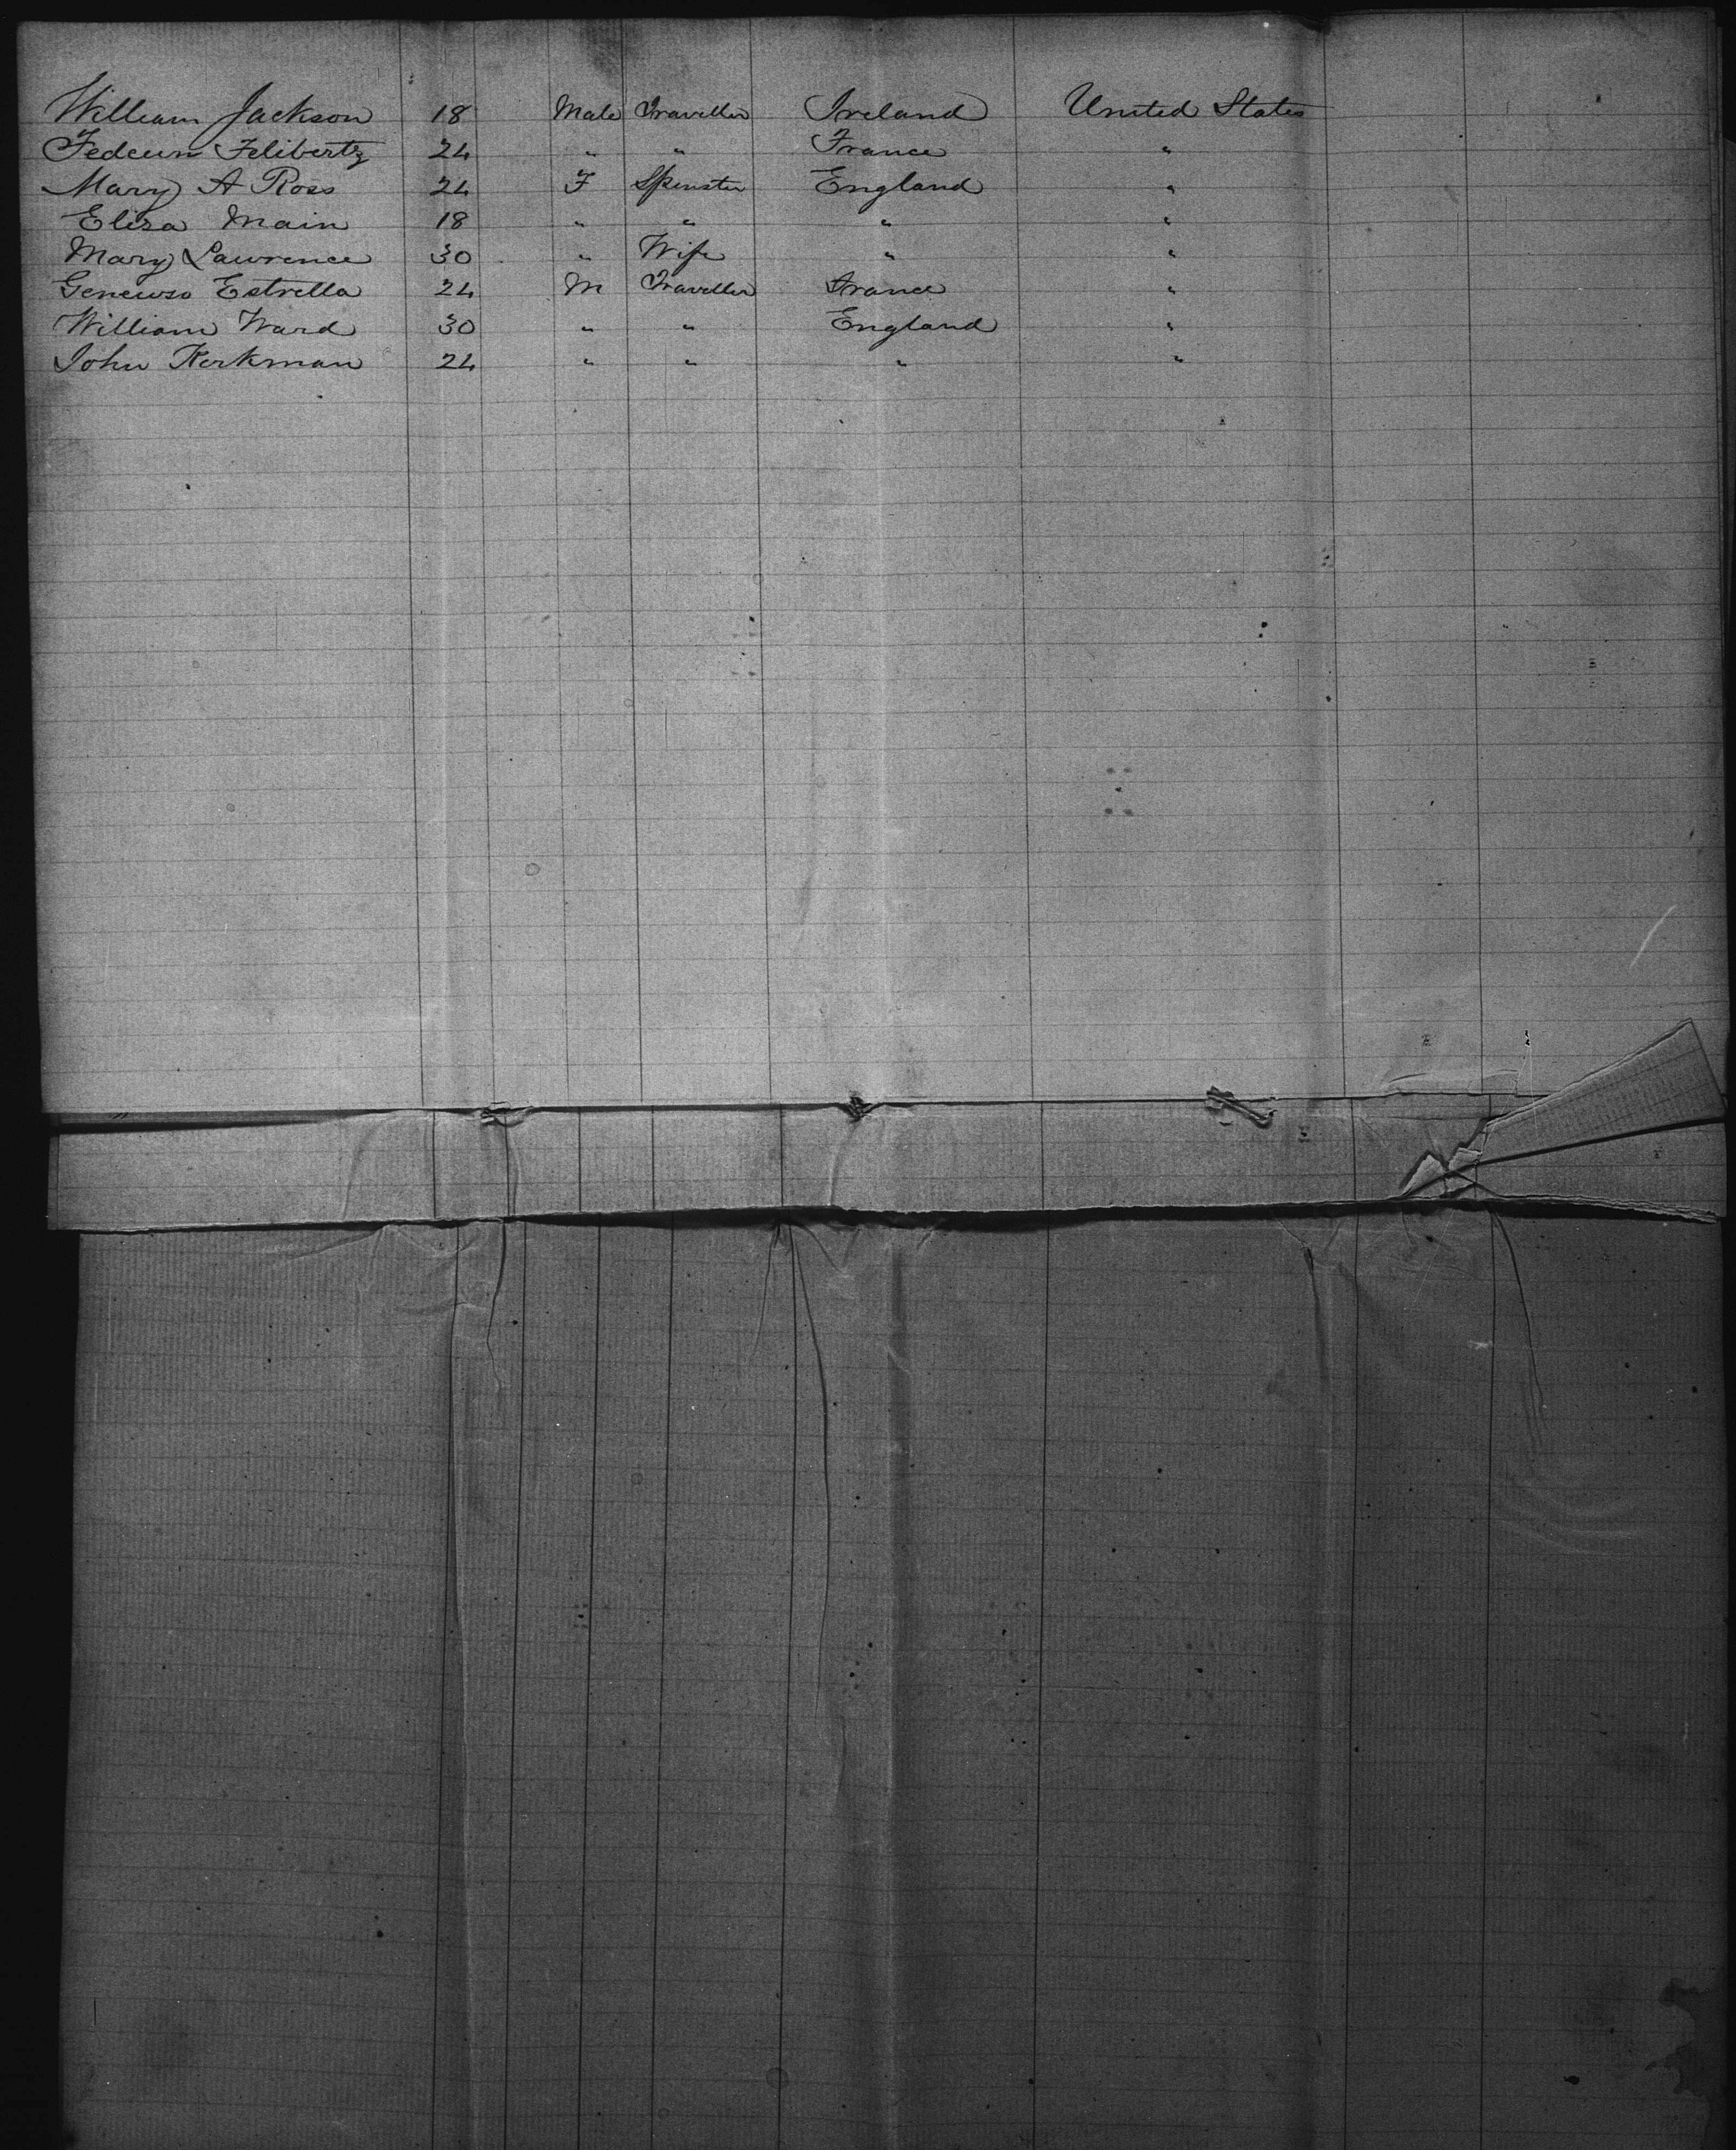 William Jackson 18 Male Traveller Ireland United States
Filibertz 24 " " France "
Mary A Ross 24 F Spinster England "
Eliza Main 18 " " " "
Mary Lawrence 30 " Wife " "
Estrella 24 M Traveller France "
William Ward 30 " " England "
John Kerkman 24 " " " "